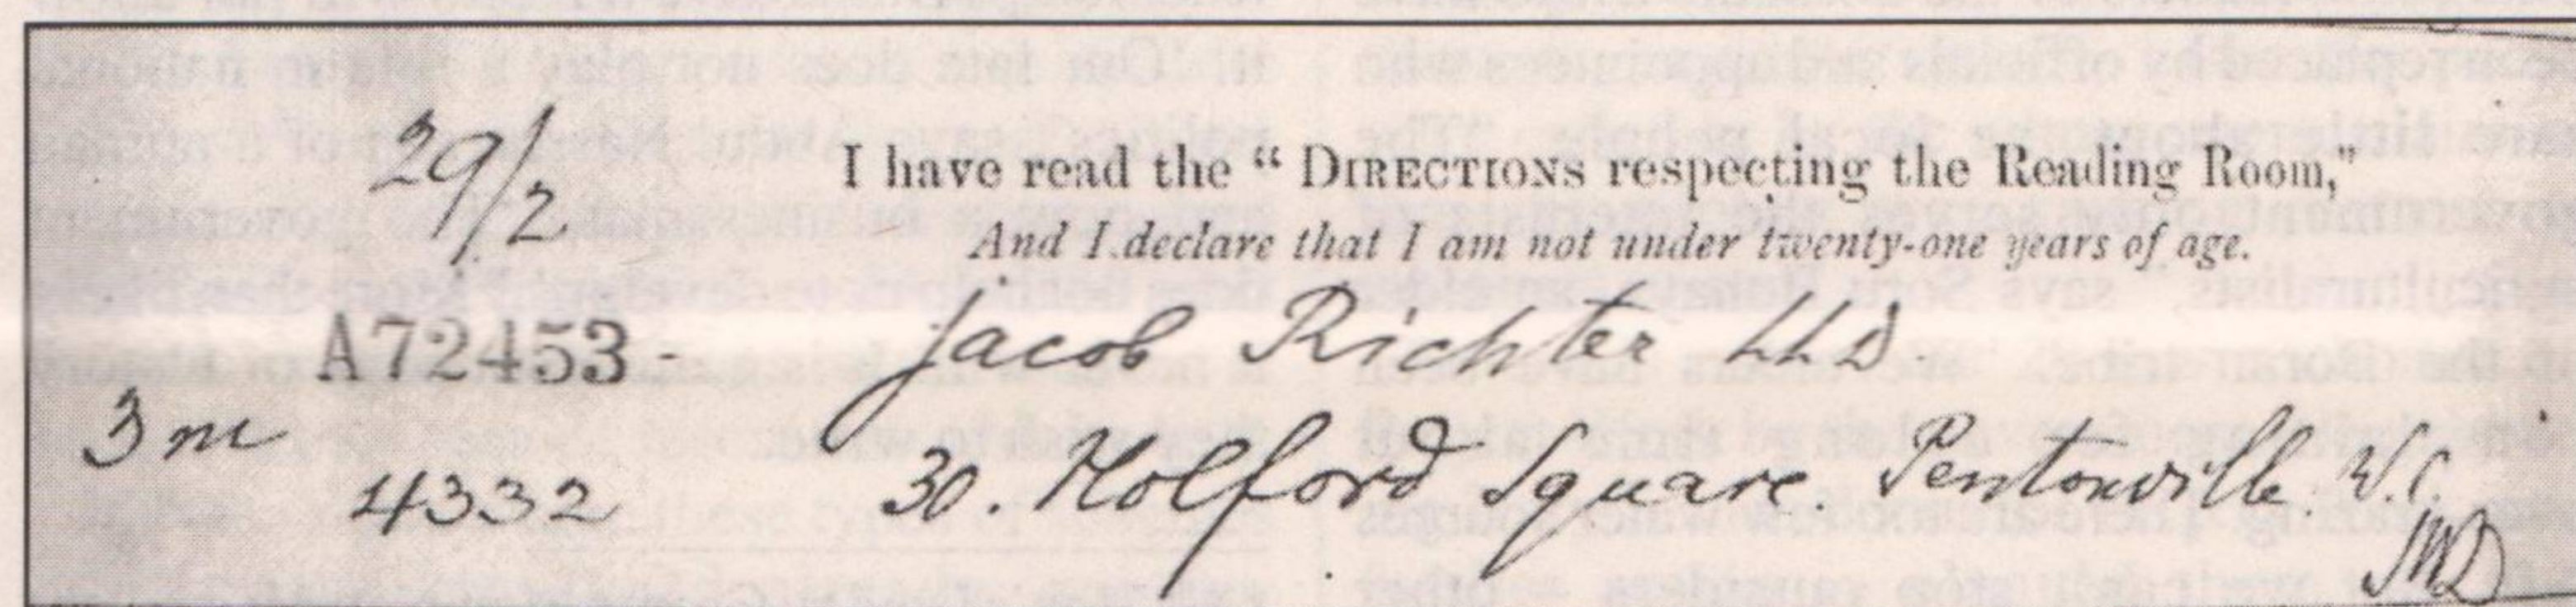 29/2
I have read the “DIRECTIONS respecting the Reading Room,”
And I declare that I am not under twenty-one years of age.
A72453-
Jacob Richter LLD.
3m
4332
30. Holford Square. Pentonville. W.C.